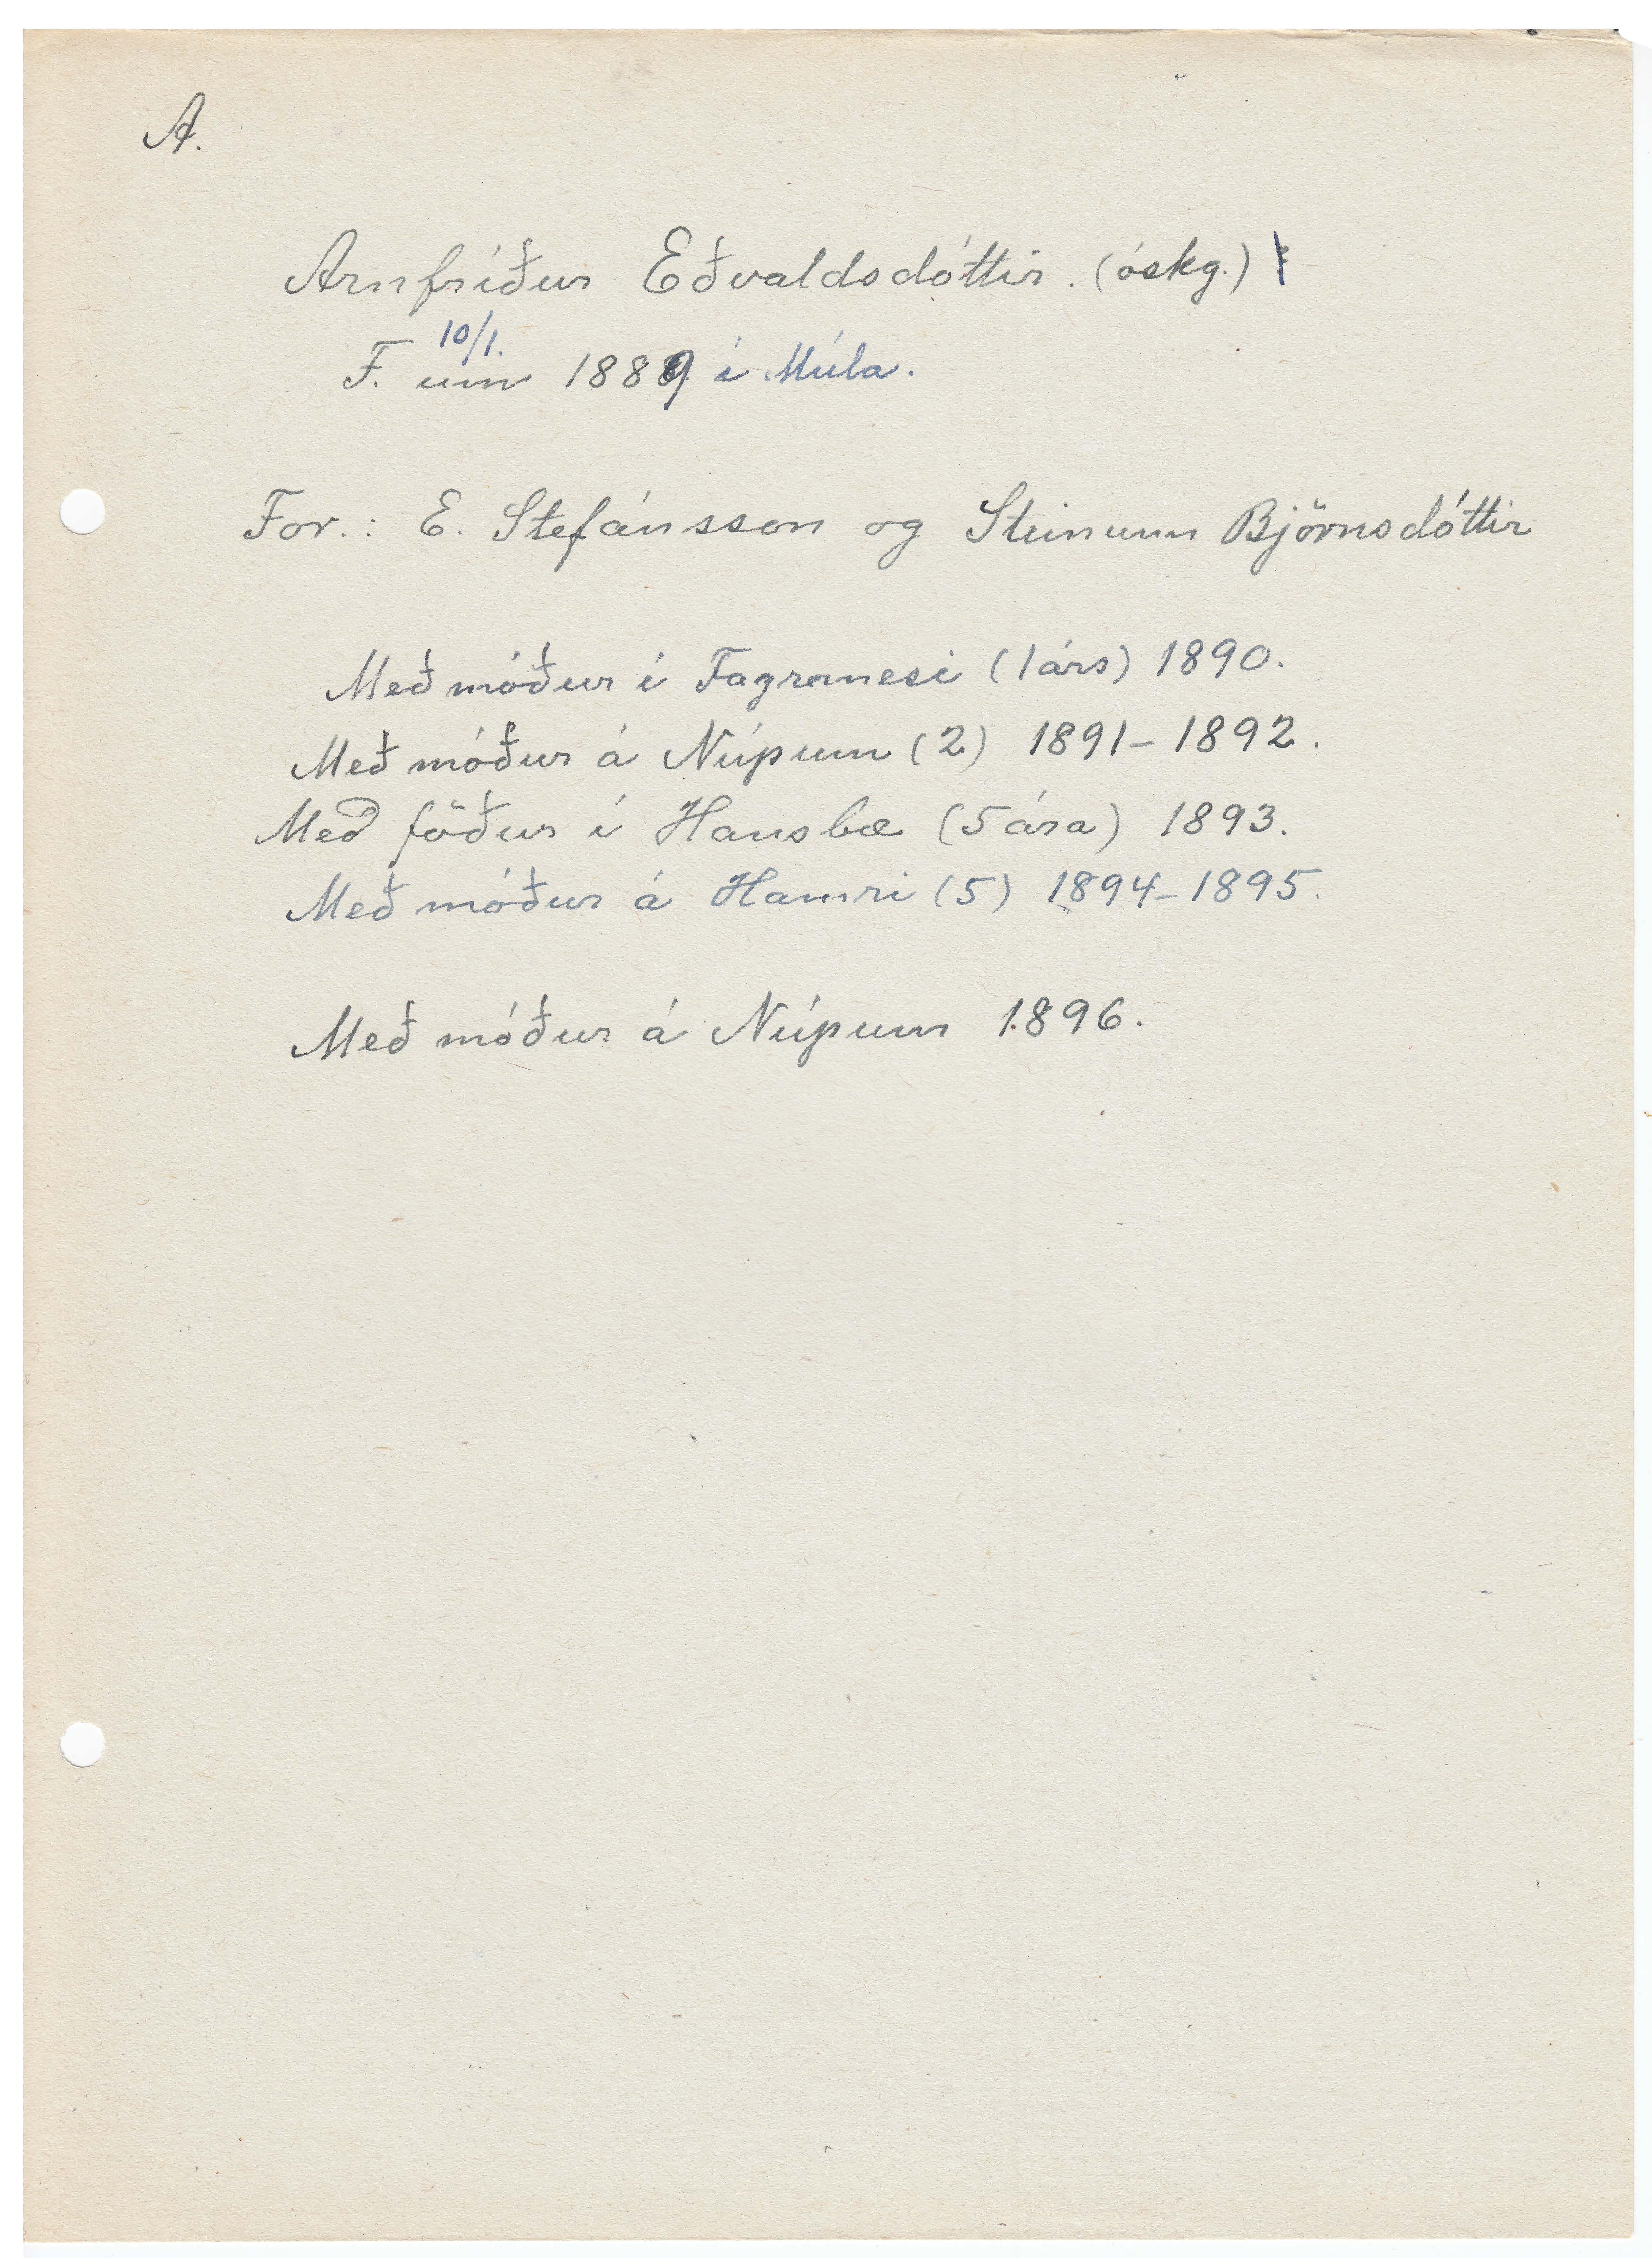 A.
Arnfríður Eðvaldsdóttir. (óskg.)
10/1.
F. um 1889 í Múla.
For.: E. Stefánsson og Steinunn Björnsdóttir
Með móður í Fagranesi (1 árs) 1890.
Með móður á Núpum (2) 1891-1892.
Með föður í Hansbæ (5 ára) 1893.
Með móður á Hamri (5) 1894-1895.
Með móður á Núpum 1896.